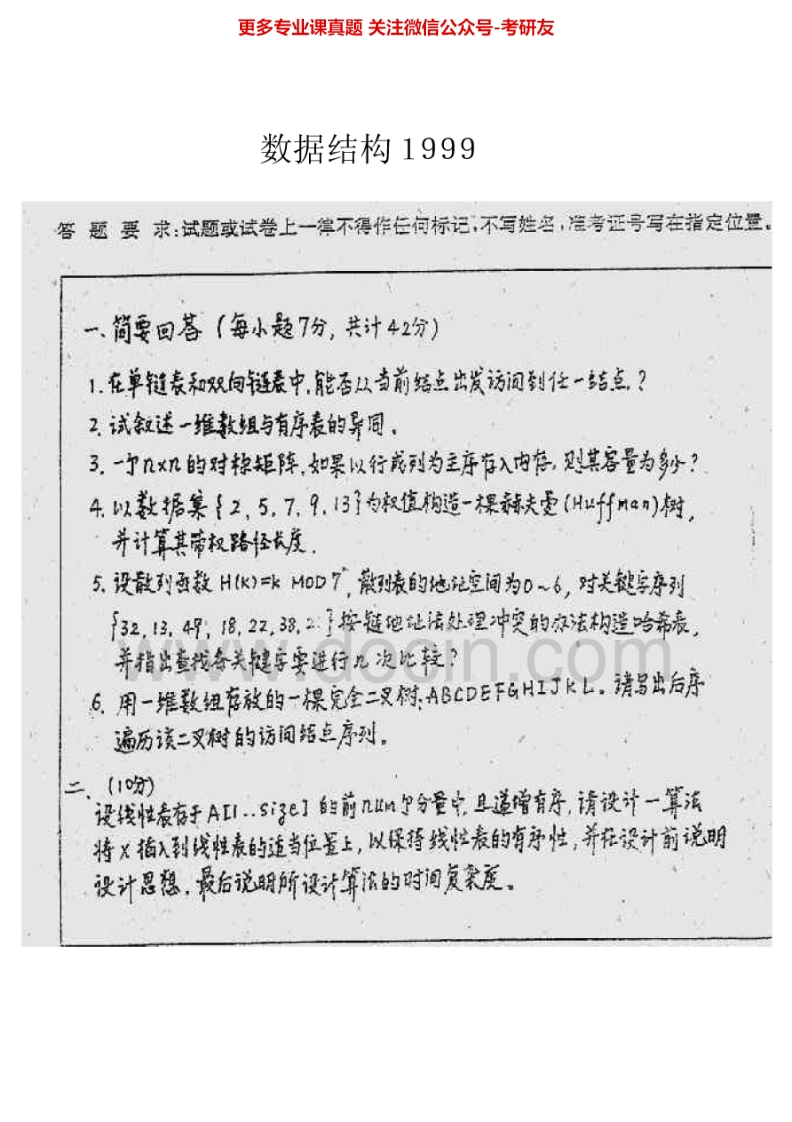 更多专业课真题 关注微信公众号-考研友
数据结构1999
答 题 要 求:试题或试卷上一律不得作任何标记,不写姓名,准考证号写在指定位置。
一、简要回答(每小题7分,共计42分)
1.在单链表和双向链表中,能否从当前结点出发访问到任一结点?
2.试叙述一维数组与有序表的异同。
3.一个n×n的对称矩阵,如果以行或列为主序存入内存,则其容量为多少?
4.以数据集{2,5,7,9,13}为权值构造一棵赫夫曼(Huffman)树,
并计算其带权路径长度.
5.设散列函数 H(k)=k MOD 7,散列表的地址空间为0~6,对关键字序列
{32,13,49,18,22,38,2 }按链地址法处理冲突的办法构造哈希表,
并指出查找各关键字要进行几次比较?
6.用一维数组存放的一棵完全二叉树:ABCDEFGHIJKL。请写出后序
遍历该二叉树的访问结点序列。
二、(10分)
设线性表存于A[1..size]的前num个分量中,且递增有序,请设计一算法
将x插入到线性表的适当位置上,以保持线性表的有序性,并在设计前说明
设计思想,最后说明所设计算法的时间复杂度。
www.docin.com